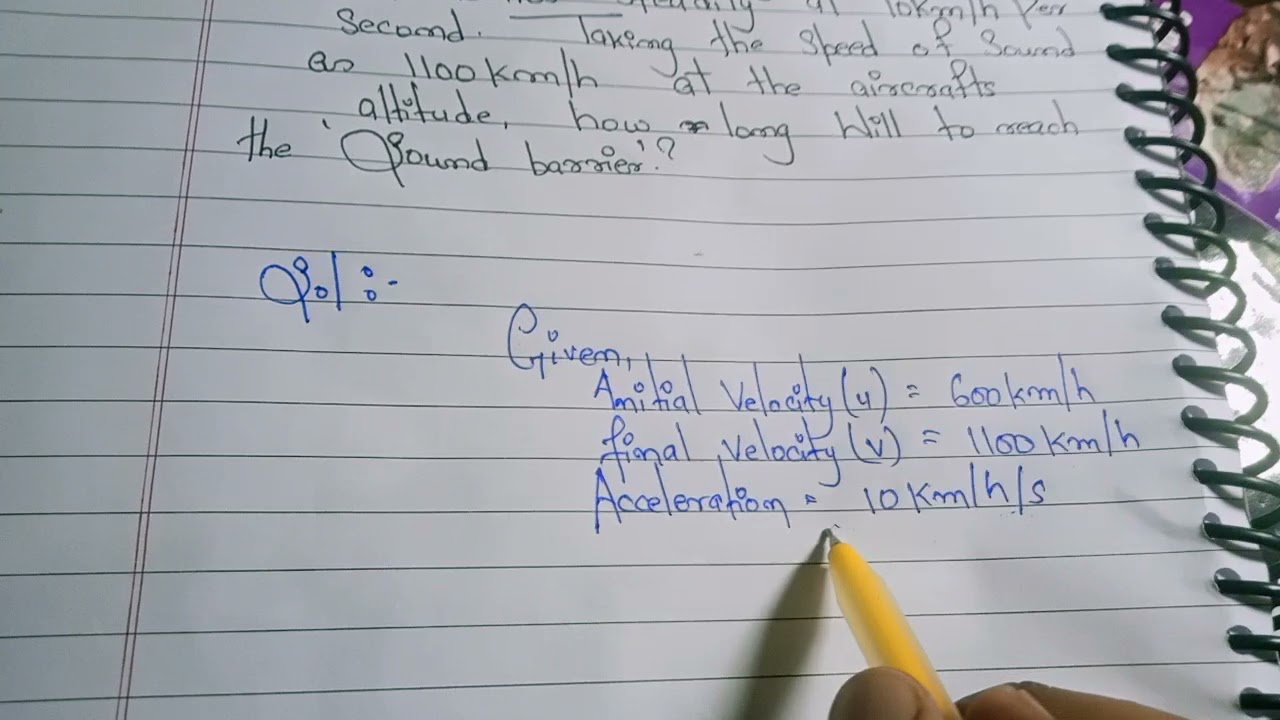 at 10kgm/h Per
Second. Taking the Speed of Sound
as 1100km/h at the aircrafts
altitude, how long Will to reach
the 'Sound barrier'?
Sol :-
Given,
Initial Velocity (u) = 600km/h
final velocity (v) = 1100km/h
Acceleration = 10km/h/s